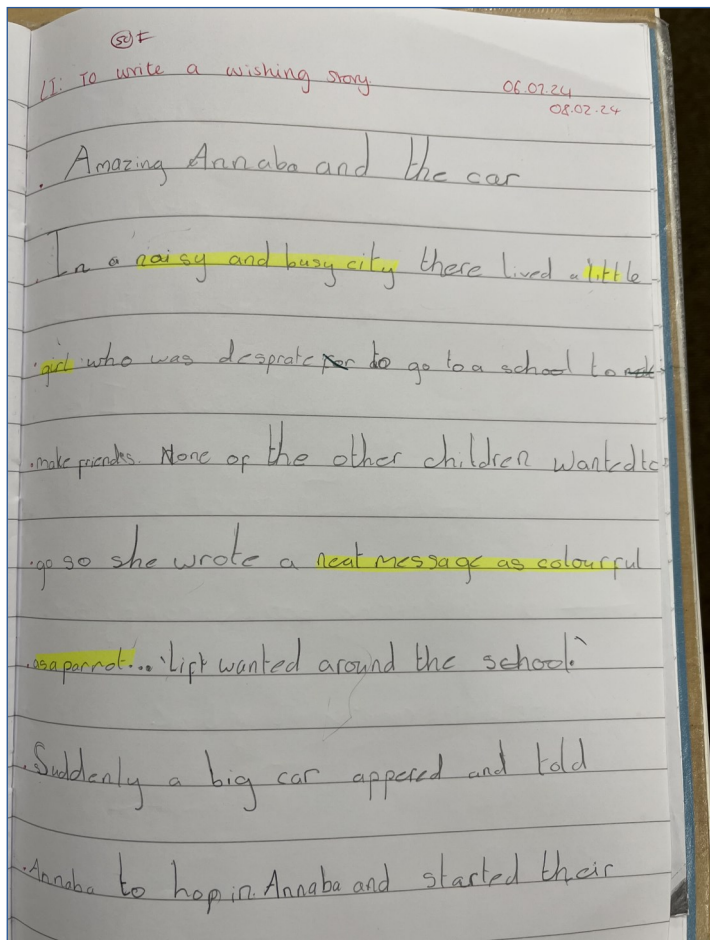 SC F
LI: To write a wishing story 06.02.24
08.02.24
Amazing Annaba and the car
In a noisy and busy city there lived a little
girl who was desprate to go to a school to
make friendes. None of the other children wanted to
go so she wrote a neat message as colourful
as a parrot... 'Lift wanted around the school.'
Suddenly a big car appered and told
Annaba to hop in. Annaba and started their